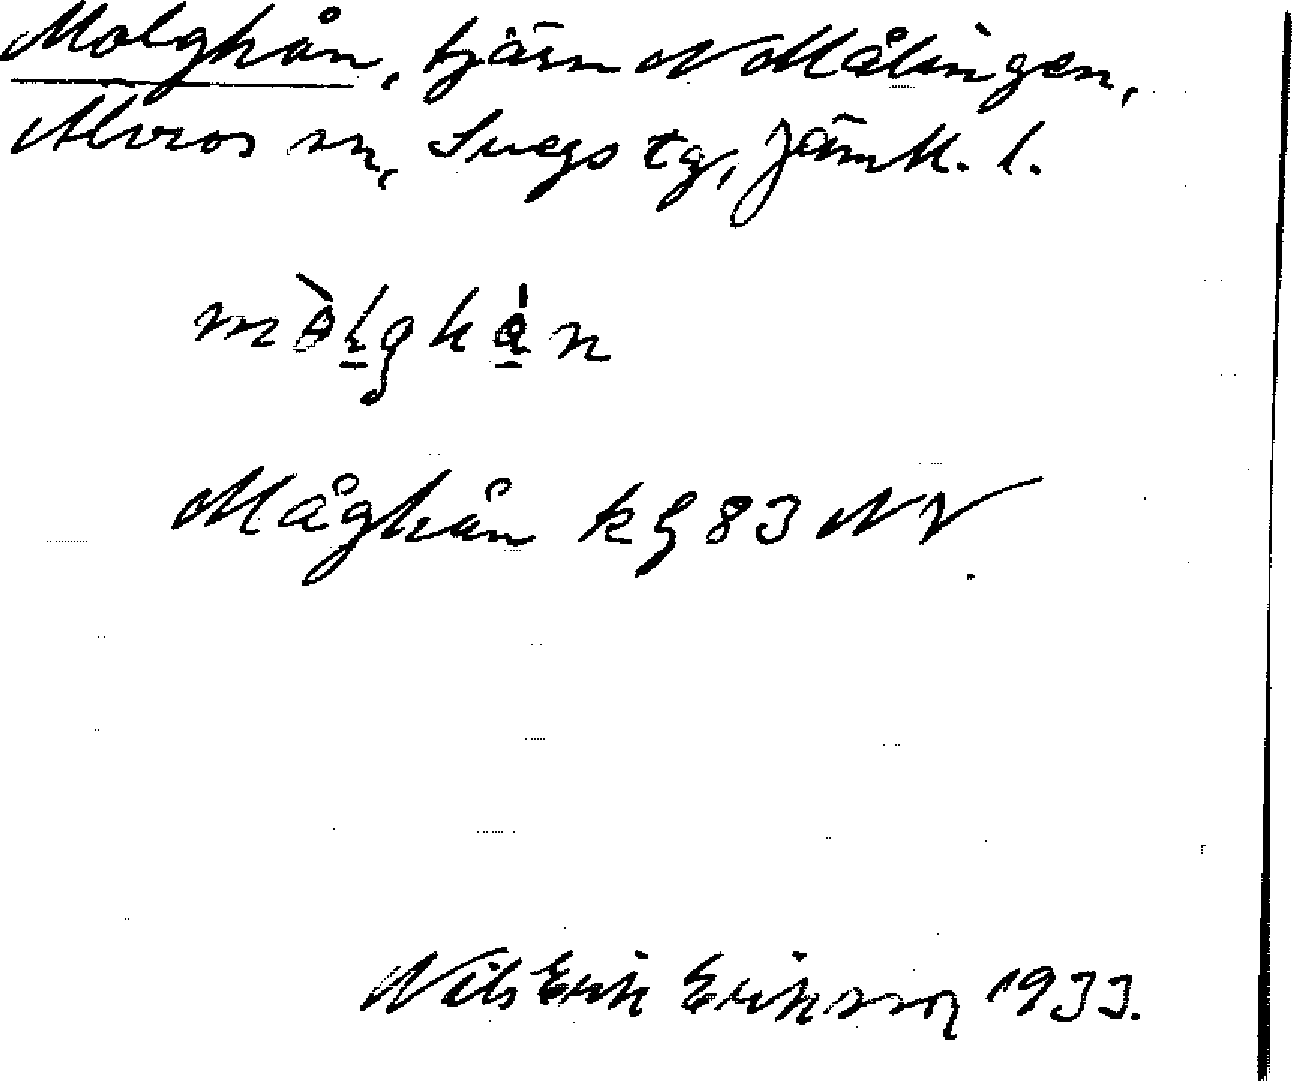 Molghån, tjärn N Målingen,
Älvros sn, Svegs tg, Jämtl. l.
mòlghån
Måghån kg 83 NV
Nils Erik Eriksson 1933.